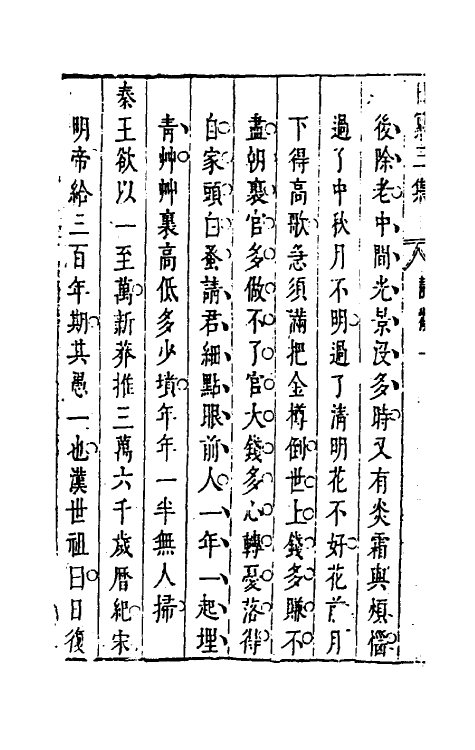 後除老中間光景沒多時又有炎霜與煩惱
過了中秋月不明過了清明花不好花前月
下得高歌急須滿把金樽倒世上錢多賺不
盡朝裏官多做不了官大錢多心轉憂落得
自家頭白蚤請君細點眼前人一年一起埋
青艸艸裏高低多少墳年年一半無人掃
秦王欲以一至萬新莽推三萬六千歲曆紀宋
明帝給三百年期其愚一也漢世祖曰日復